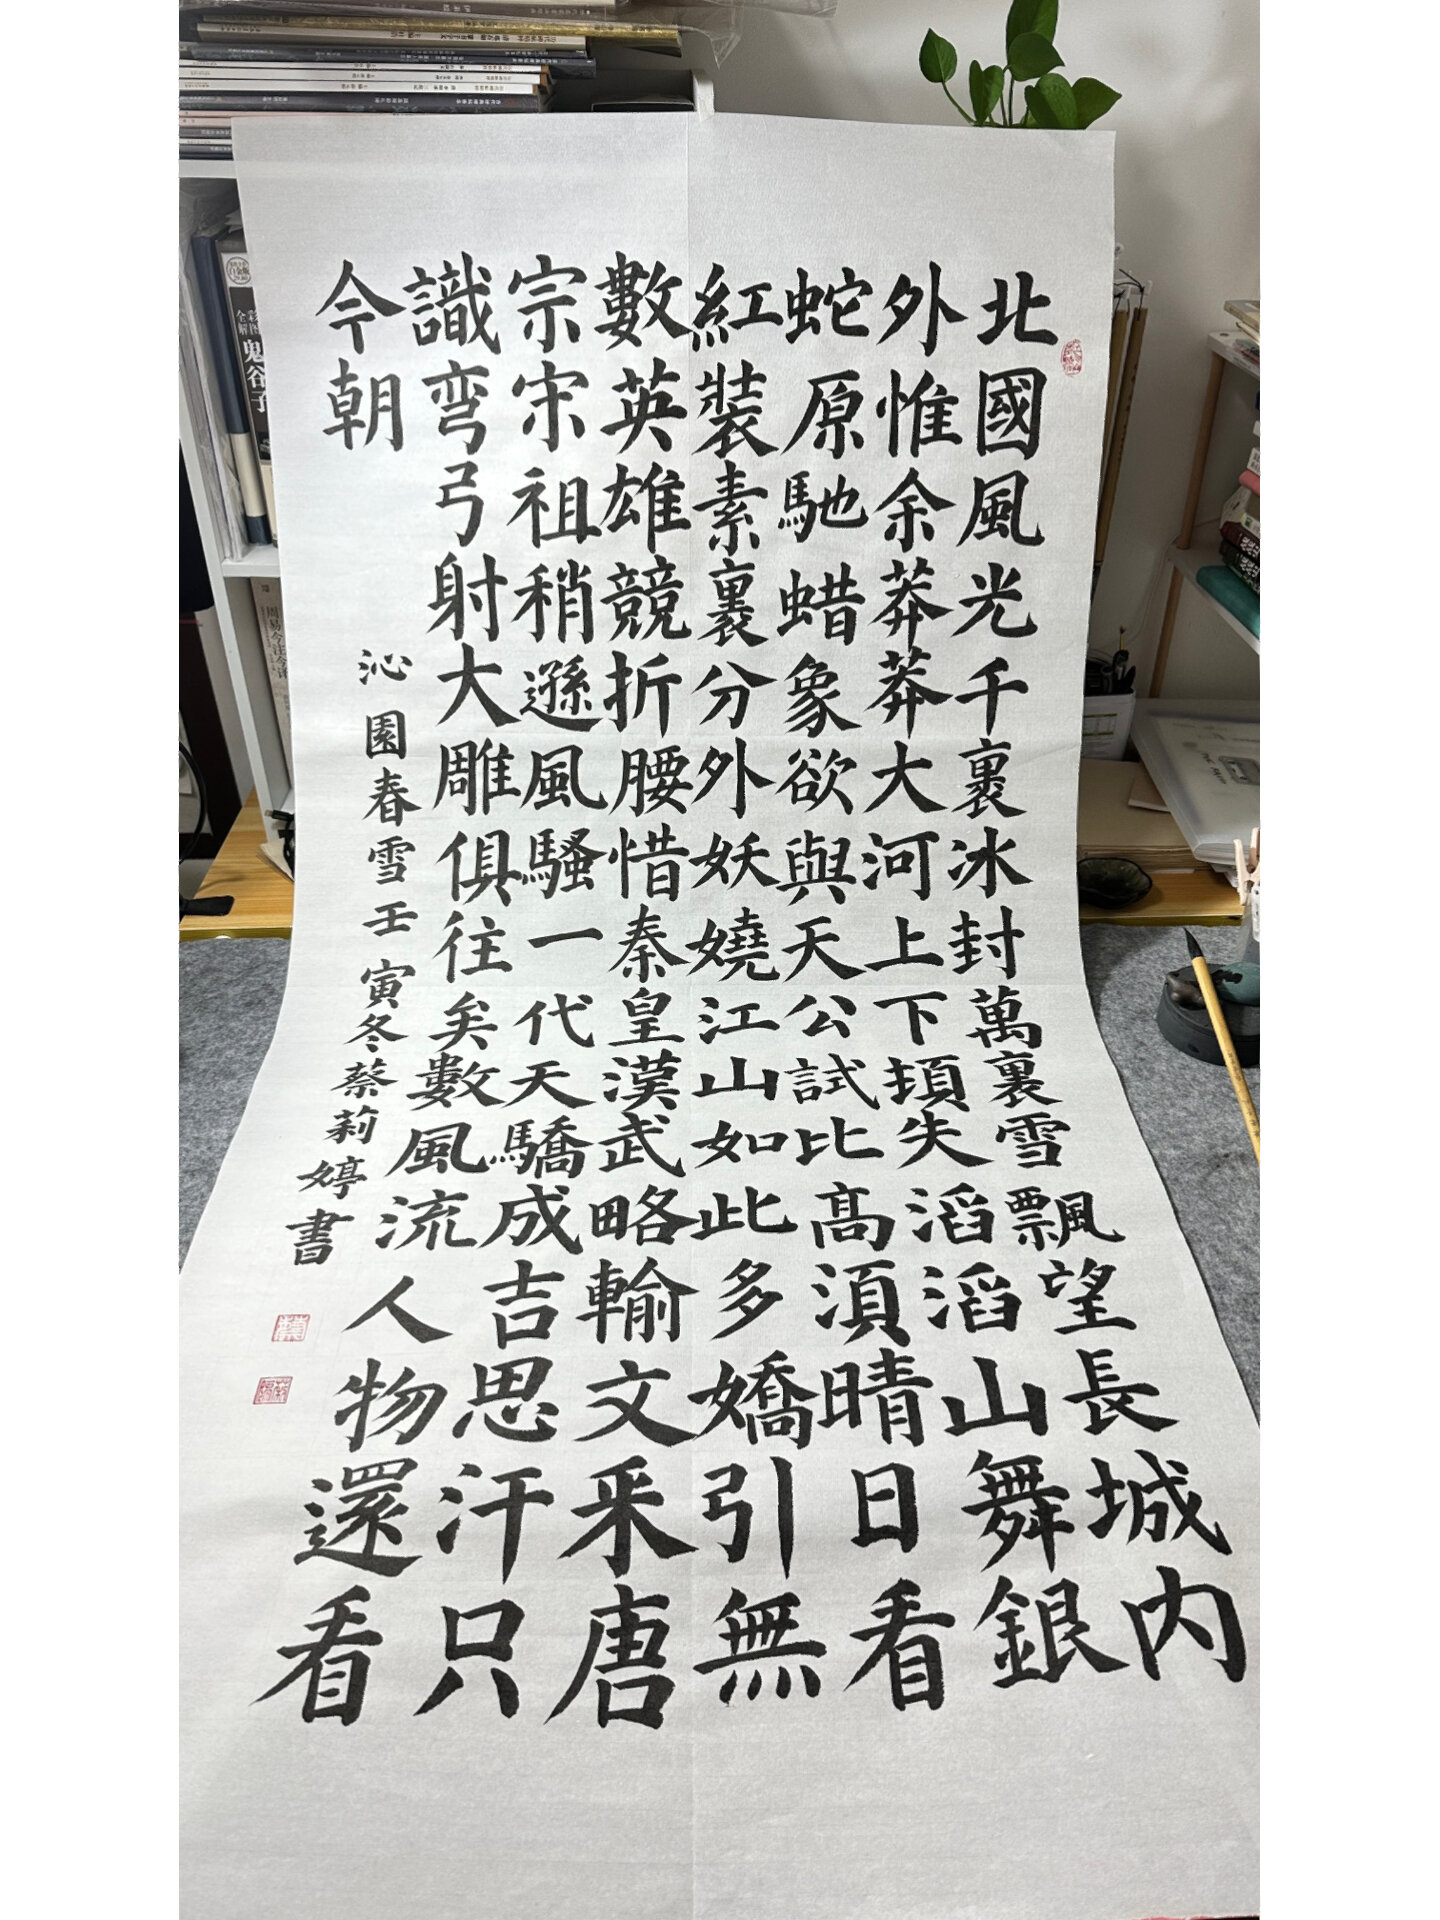 北國風光千裏冰封萬裏雪飄望長城内
外惟余莽莽大河上下頓失滔滔山舞銀
蛇原馳蜡象欲與天公試比高須晴日看
紅装素裹分外妖嬈江山如此多嬌引無
數英雄競折腰惜秦皇漢武略輸文采唐
宗宋祖稍遜風騷一代天驕成吉思汗只
識弯弓射大雕俱往矣數風流人物還看
今朝
沁園春雪壬寅冬蔡莉婷書
彩图全解
鬼谷子
周易今注今译